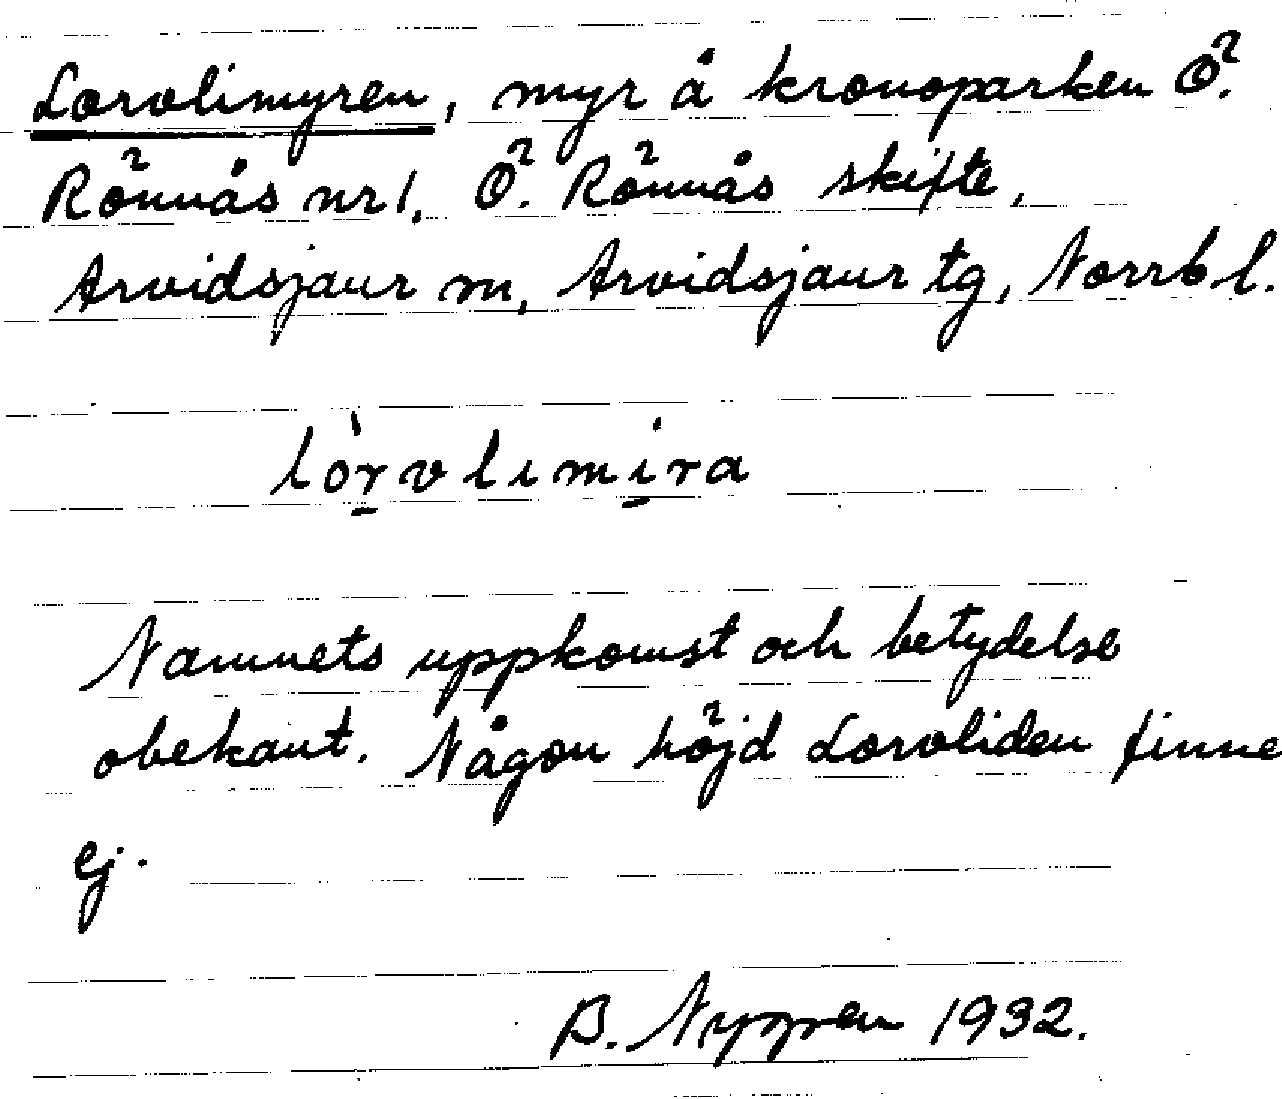 Lorvlimyren, myr å kronoparken Ö.
Rönnås nr 1, Ö. Rönnås skifte,
Arvidsjaur sn, Arvidsjaur tg, Norrb. l.
lòrvlimira
Namnets uppkomst och betydelse
obekant. Någon höjd Lorvliden finne
ej.
B. 1932.